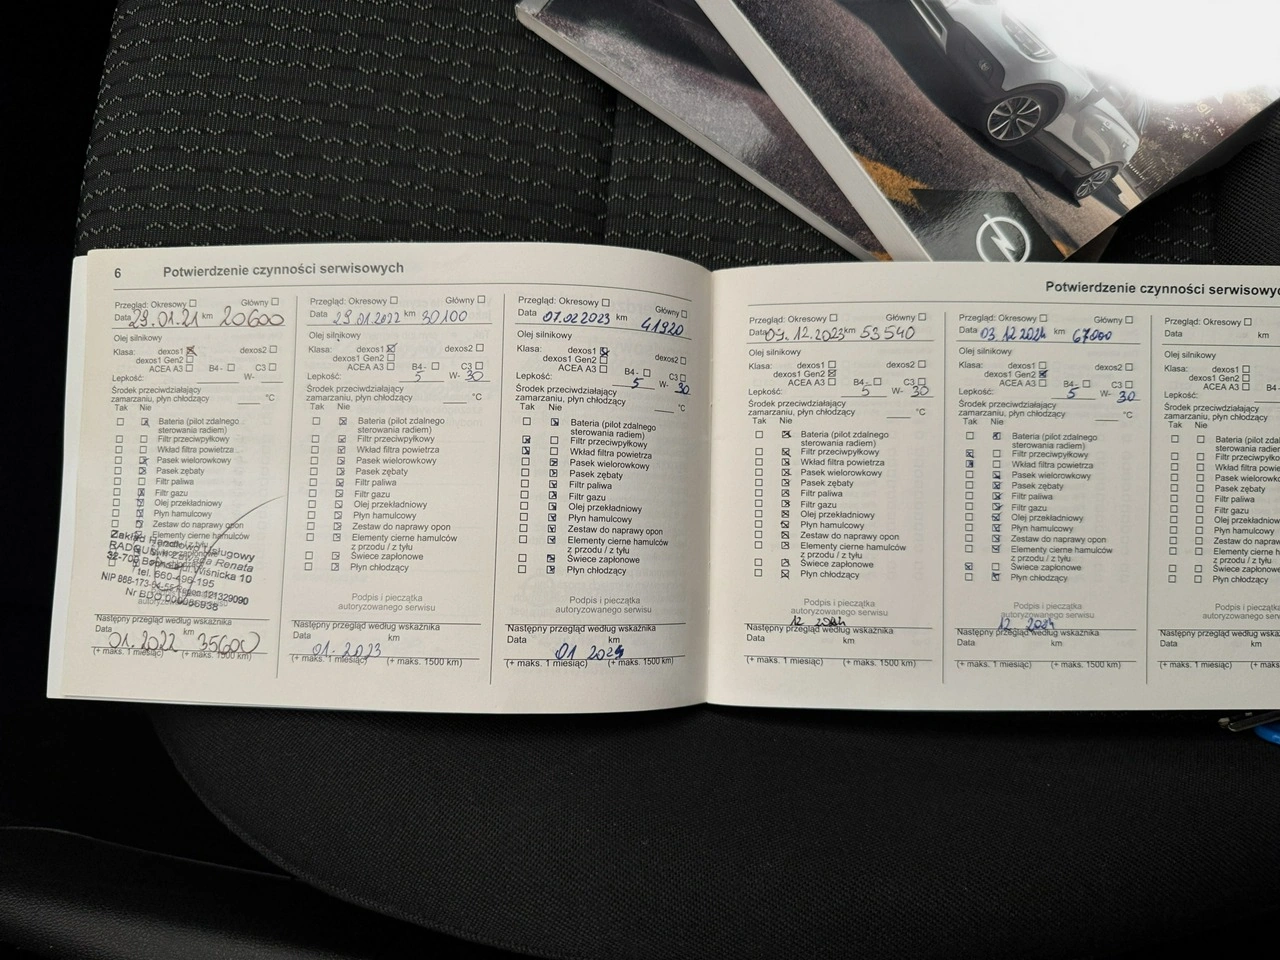 6 Potwierdzenie czynności serwisowych
Przegląd: Okresowy ☐ Główny ☐
Data 29.01.21 km 20600
Olej silnikowy
Klasa: dexos1 ☒ dexos2 ☐
dexos1 Gen2 ☐
ACEA A3 ☐ B4- ☐ C3 ☐
Lepkość: W-
Środek przeciwdziałający
zamarzaniu, płyn chłodzący °C
Tak Nie
☐ ☒ Bateria (pilot zdalnego
sterowania radiem)
☐ ☒ Filtr przeciwpyłkowy
☐ ☒ Wkład filtra powietrza
☐ ☒ Pasek wielorowkowy
☐ ☒ Pasek zębaty
☐ ☐ Filtr paliwa
☐ ☒ Filtr gazu
☐ ☒ Olej przekładniowy
☐ ☒ Płyn hamulcowy
☐ ☒ Zestaw do naprawy opon
Elementy cierne hamulców
Zakład Handlowo Usługowy
Renata
32-700 Wiśnicka 10
Następny przegląd według wskaźnika
Data 01.2022 km 35600
(+ maks. 1 miesiąc) (+ maks. 1500 km)
Przegląd: Okresowy ☐ Główny ☐
Data 29.01.2022 km 30100
Olej silnikowy
Klasa: dexos1 ☒ dexos2 ☐
dexos1 Gen2 ☐
ACEA A3 ☐ B4- ☐ C3 ☐
Lepkość: 5 W- 30
Środek przeciwdziałający
zamarzaniu, płyn chłodzący °C
Tak Nie
☐ ☒ Bateria (pilot zdalnego
sterowania radiem)
☐ ☒ Filtr przeciwpyłkowy
☐ ☒ Wkład filtra powietrza
☐ ☒ Pasek wielorowkowy
☐ ☒ Pasek zębaty
☐ ☒ Filtr paliwa
☐ ☒ Filtr gazu
☐ ☒ Olej przekładniowy
☐ ☒ Płyn hamulcowy
☐ ☒ Zestaw do naprawy opon
☐ ☒ Elementy cierne hamulców
z przodu / z tyłu
☐ ☒ Świece zapłonowe
☐ ☒ Płyn chłodzący
Podpis i pieczątka
autoryzowanego serwisu
Następny przegląd według wskaźnika
Data 01.2023 km
(+ maks. 1 miesiąc) (+ maks. 1500 km)
Przegląd: Okresowy ☐ Główny ☐
Data 07.02.2023 km 41920
Olej silnikowy
Klasa: dexos1 ☒ dexos2 ☐
dexos1 Gen2 ☐
ACEA A3 ☐ B4- ☐ C3 ☐
Lepkość: 5 W- 30
Środek przeciwdziałający
zamarzaniu, płyn chłodzący °C
Tak Nie
☐ ☒ Bateria (pilot zdalnego
sterowania radiem)
☒ ☐ Filtr przeciwpyłkowy
☒ ☐ Wkład filtra powietrza
☐ ☒ Pasek wielorowkowy
☐ ☒ Pasek zębaty
☐ ☒ Filtr paliwa
☐ ☒ Filtr gazu
☐ ☒ Olej przekładniowy
☐ ☒ Płyn hamulcowy
☐ ☒ Zestaw do naprawy opon
☐ ☒ Elementy cierne hamulców
z przodu / z tyłu
☐ ☒ Świece zapłonowe
☐ ☒ Płyn chłodzący
Podpis i pieczątka
autoryzowanego serwisu
Następny przegląd według wskaźnika
Data 01 2024 km
(+ maks. 1 miesiąc) (+ maks. 1500 km)
Potwierdzenie czynności
Przegląd: Okresowy ☐ Główny ☐
Data 09.12.2023 km 53540
Olej silnikowy
Klasa: dexos1 ☐ dexos2 ☐
dexos1 Gen2 ☒
ACEA A3 ☐ B4- ☐ C3 ☐
Lepkość: 5 W- 30
Środek przeciwdziałający
zamarzaniu, płyn chłodzący °C
Tak Nie
☐ ☒ Bateria (pilot zdalnego
sterowania radiem)
☐ ☒ Filtr przeciwpyłkowy
☐ ☒ Wkład filtra powietrza
☐ ☒ Pasek wielorowkowy
☐ ☒ Pasek zębaty
☐ ☒ Filtr paliwa
☐ ☒ Filtr gazu
☐ ☒ Olej przekładniowy
☐ ☒ Płyn hamulcowy
☐ ☒ Zestaw do naprawy opon
☐ ☒ Elementy cierne hamulców
z przodu / z tyłu
☐ ☒ Świece zapłonowe
☐ ☒ Płyn chłodzący
Podpis i pieczątka
autoryzowanego serwisu
12 2024
Następny przegląd według wskaźnika
Data km
(+ maks. 1 miesiąc) (+ maks. 1500 km)
Przegląd: Okresowy ☐ Główny ☐
Data 03.12.2024 km 67000
Olej silnikowy
Klasa: dexos1 ☐ dexos2 ☐
dexos1 Gen2 ☒
ACEA A3 ☐ B4- ☐ C3 ☐
Lepkość: 5 W- 30
Środek przeciwdziałający
zamarzaniu, płyn chłodzący °C
Tak Nie
☐ ☒ Bateria (pilot zdalnego
sterowania radiem)
☒ ☐ Filtr przeciwpyłkowy
☒ ☐ Wkład filtra powietrza
☐ ☒ Pasek wielorowkowy
☐ ☒ Pasek zębaty
☐ ☒ Filtr paliwa
☐ ☒ Filtr gazu
☐ ☒ Olej przekładniowy
☐ ☒ Płyn hamulcowy
☐ ☒ Zestaw do naprawy opon
☐ ☒ Elementy cierne hamulców
z przodu / z tyłu
☒ ☐ Świece zapłonowe
☐ ☒ Płyn chłodzący
Podpis i pieczątka
autoryzowanego serwisu
12 2024
Następny przegląd według wskaźnika
Data km
(+ maks. 1 miesiąc) (+ maks. 1500 km)
Przegląd: Okresowy ☐
Data km
Olej silnikowy
Klasa: dexos1 ☐
dexos1 Gen2 ☐
ACEA A3 ☐
Lepkość:
Środek przeciwdziałający
zamarzaniu, płyn chłodzący
Tak Nie
☐ ☐ Bateria (pilot
sterowania
☐ ☐ Filtr
☐ ☐ Wkład filtra
☐ ☐ Pasek
☐ ☐ Pasek zębaty
☐ ☐ Filtr paliwa
☐ ☐ Filtr gazu
☐ ☐ Olej
☐ ☐ Płyn
☐ ☐ Zestaw do
☐ ☐ Elementy
z przodu / z
☐ ☐ Świece
☐ ☐ Płyn
Podpis
Następny przegląd według
Data
(+ maks. 1 miesiąc) (+